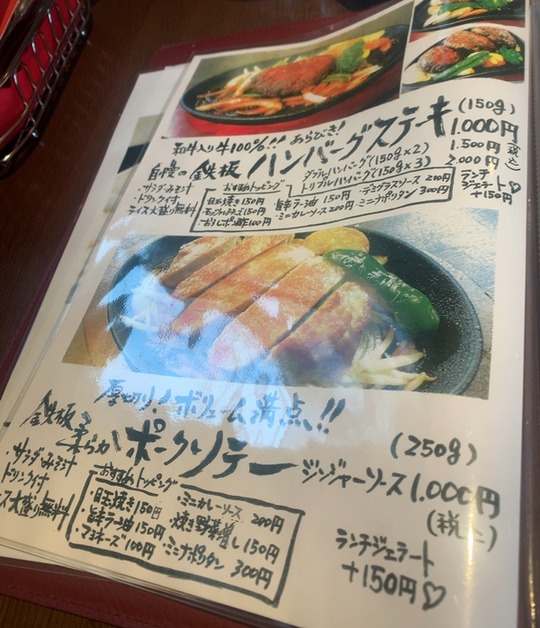 和牛入り牛100%!! あらびき! (150g)
自慢の鉄板 ハンバーグステーキ 1.000円
ダブルハンバーグ(150g×2) 1.500円(税込)
トリプルハンバーグ(150g×3) 2.000円
・サラダみそ汁
・ドリンク付
ライス大盛り無料
おすすめトッピング
・目玉焼き150円 ・旨辛ラー油150円 ・デミグラスソース200円
・ミニカレーソース200円 ・ミニナポリタン300円
・おろしポン酢100円
ランチ
ジェラート♡
+150円
厚切り!ボリューム満点!!
鉄板 柔らか ポークソテー (250g)
ジンジャーソース 1.000円
(税込)
・サラダみそ汁
ドリンク付
ス大盛り無料
おすすめトッピング
・目玉焼き150円 ・ミニカレーソース200円
・旨辛ラー油150円 ・焼き野菜増し150円
・マヨネーズ100円 ・ミニナポリタン300円
ランチジェラート
+150円♡